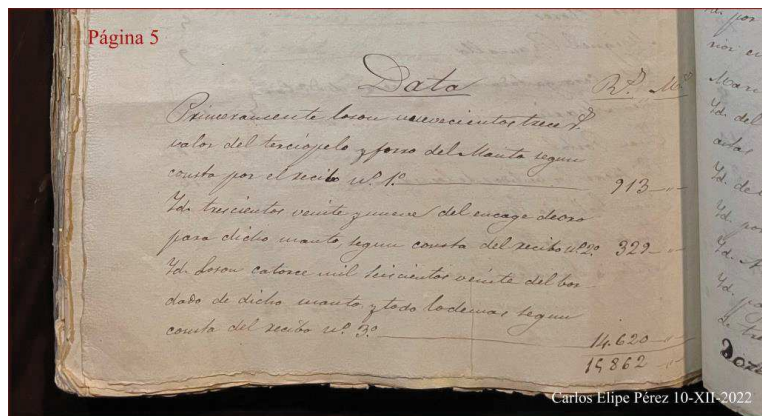 Página 5
Data
R.s M.s
Primeramente loson nuevecientos trece r.s
valor del terciopelo y forro del Manto segun
consta por el recibo n.º 1.º 913
Yd. trescientos veinte y nueve del encage de oro
para dicho manto segun consta del recibo n.º 2.º 329
Yd. Loson catorce mil seiscientos veinte del bor
dado de dicho manto y todo lo demas segun
consta del recibo n.º 3.º
14.620
15,862
Yd. del
Carlos Elipe Pérez 10-XII-2022